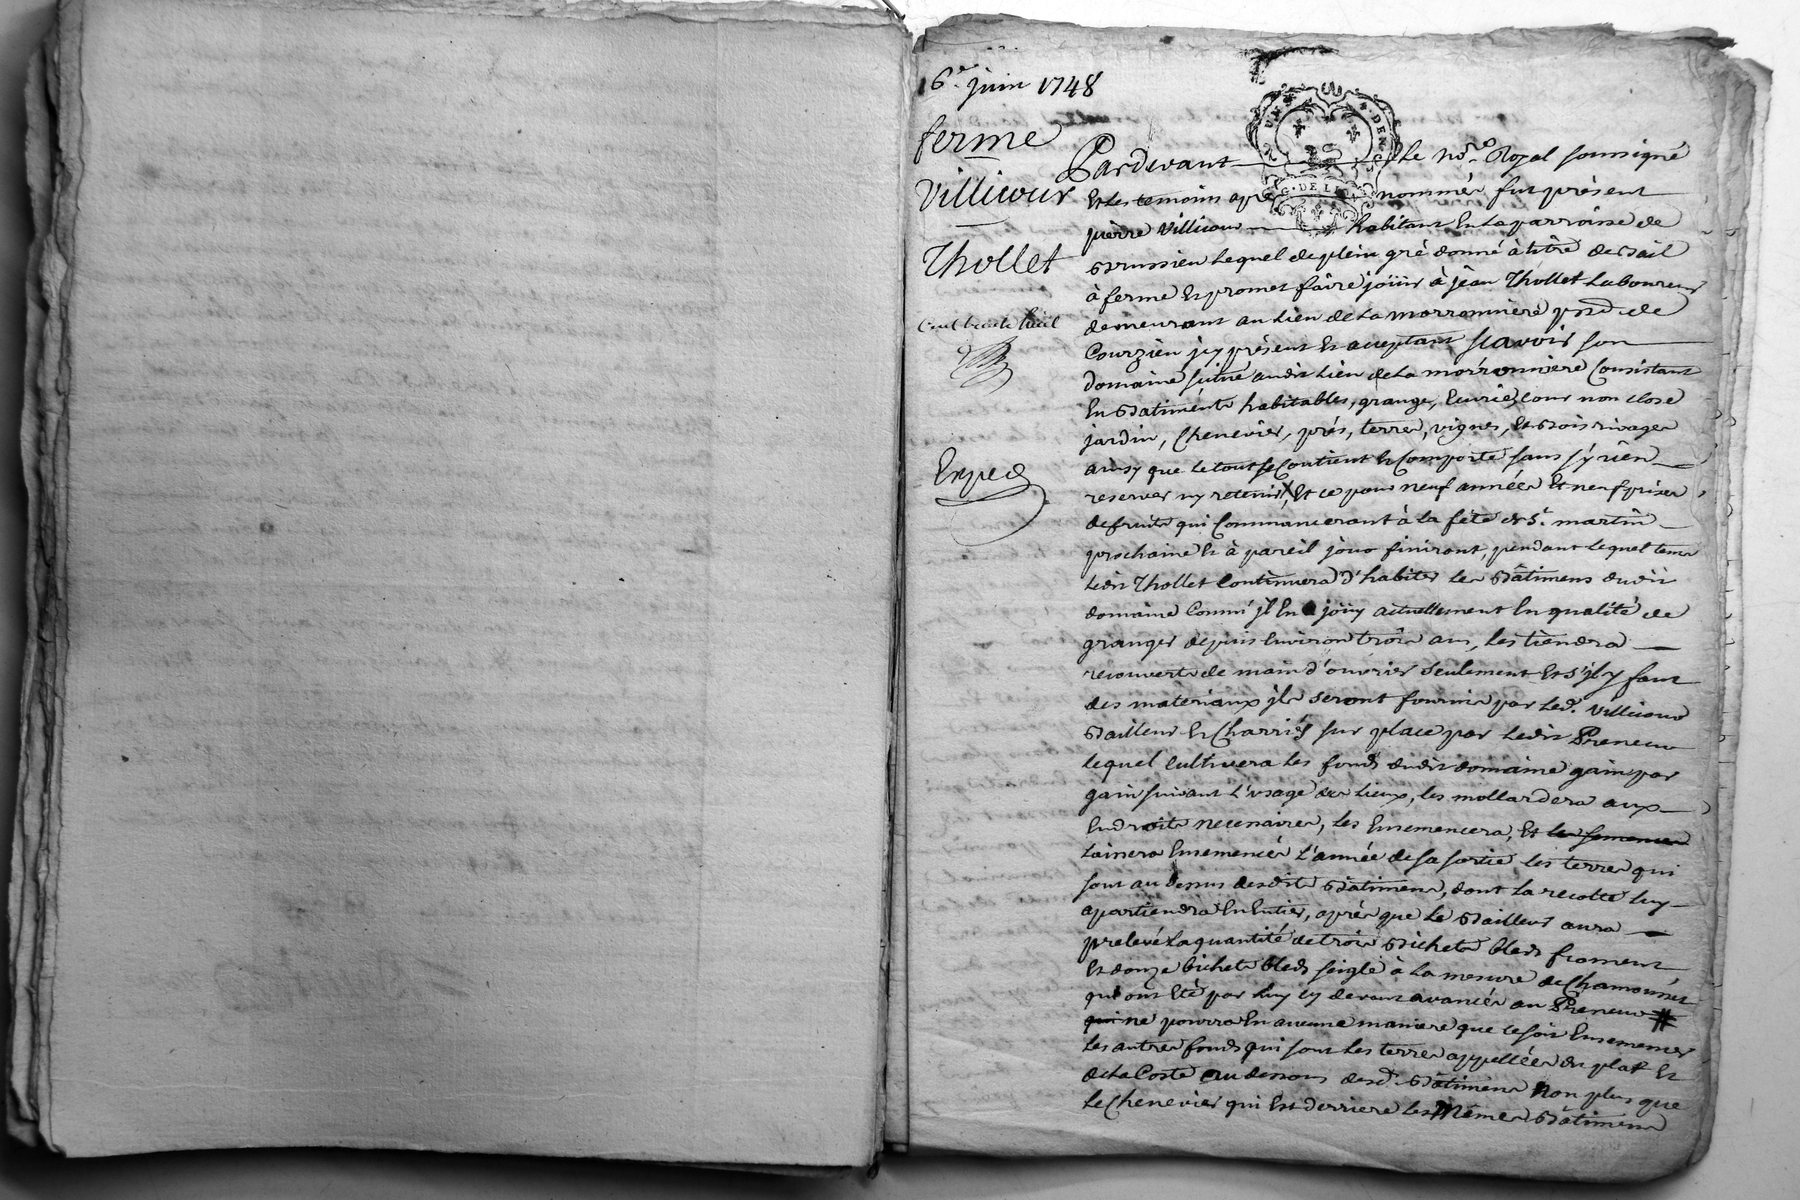 6e. juin 1748
ferme
Villicour
Thollet
Cent trente huit
Exped
GEN DE LION
Pardevant le Nore. Royal soussigné
Et les temoins apres nommés fut présent
pierre Villicour habitant En la parroisse de
Brussieu lequel de plein gré donné à titre de Bail
à ferme Et promet faire joüir à jean Thollet Laboureur
demeurant au Lieu de La morronniere parsse de
Courzieu jcy présent Et acceptant sçavoir son
domaine scitué audit Lieu de La morronniere Consistant
En Batiments habitables, grange, Ecurie, Cour non close
jardin, Chenevier, prés, terres, vignes, et Bois rivages
ainsy que le tout se Contient Et Comporte sans s'y rien
reserver ny retenir, Et ce pour neuf années Et neuf prises
de fruits qui Commanceront à la féte de St. martin
prochaine Et à pareil jour finiront, pendant Lequel tems
Ledit Thollet Continuera d'habiter les Bâtimens dudit
domaine Comm' jl En a joüy actuellement En qualité de
granger depuis Environ trois ans, les tiendra
recouverts de main d'ouvrier seulement Et s'jl y faut
des materiaux jls seront fournis par Led. Villicour
Bailleur Et Charriés sur place par Ledit Preneur
lequel Cultivera les fonds dudit domaine gain par
gain suivant L'usage des Lieux, les mollardera aux
Endroits necessaires, les Ensemencera, Et les semences
Laissera Ensemencés L'année de sa sortie les terres qui
sont au dessus desdits Bâtimens, dont La recolte luy
apartiendra En Entier, aprés que Le Bailleur aura
prelevé La quantité de trois Bichets bleds froment
Et douze bichets bleds seigle à La mesure de Chamousset
qui ont Eté par Luy cy devant avancés au Preneur #
qui ne pourra En aucune maniere que ce soit Ensemencer
Les autres fonds qui sont Les terres appellées du plat Et
de La Coste au dessous desd. Bâtimens Non plus que
Le Chenevier qui Est derriere les Mémes Bâtimens